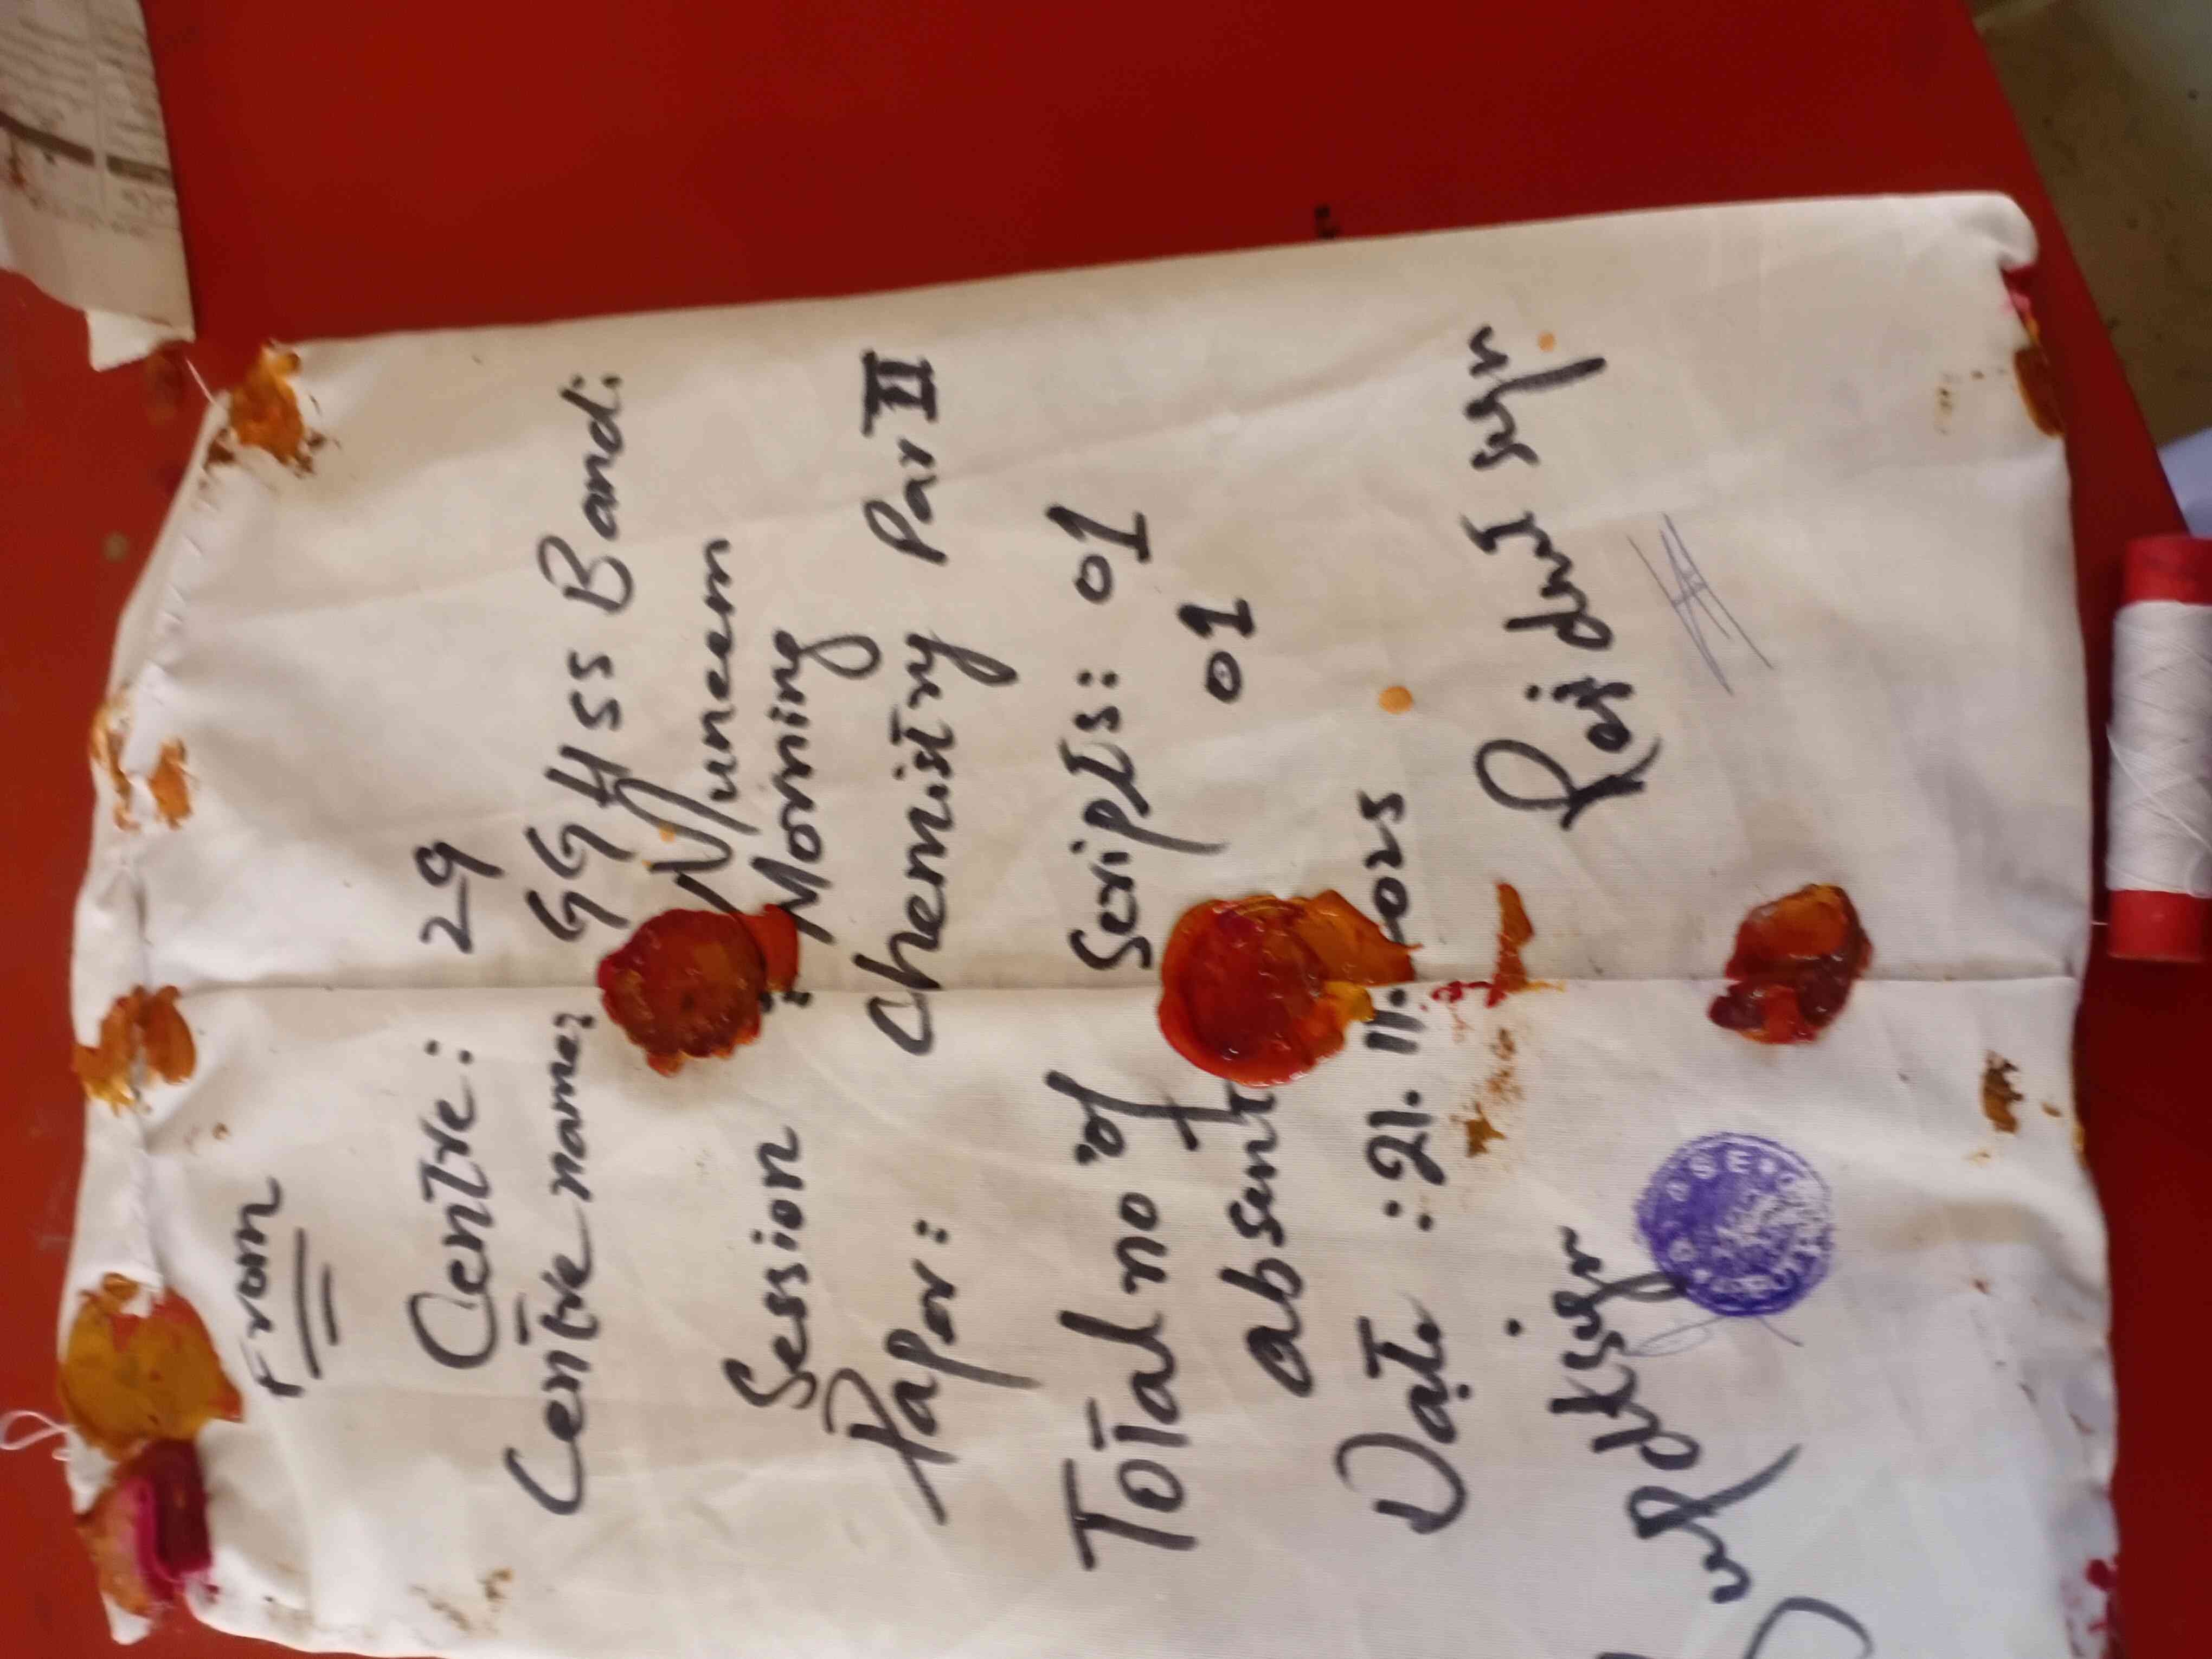 From
Centre: 29
Centre name: GGHSS Bandi
Muneem
Session : Morning
Paper: Chemistry Par II
Total no of Scripts: 01
absent 01
Date : 21.11.2025
Supdt sign